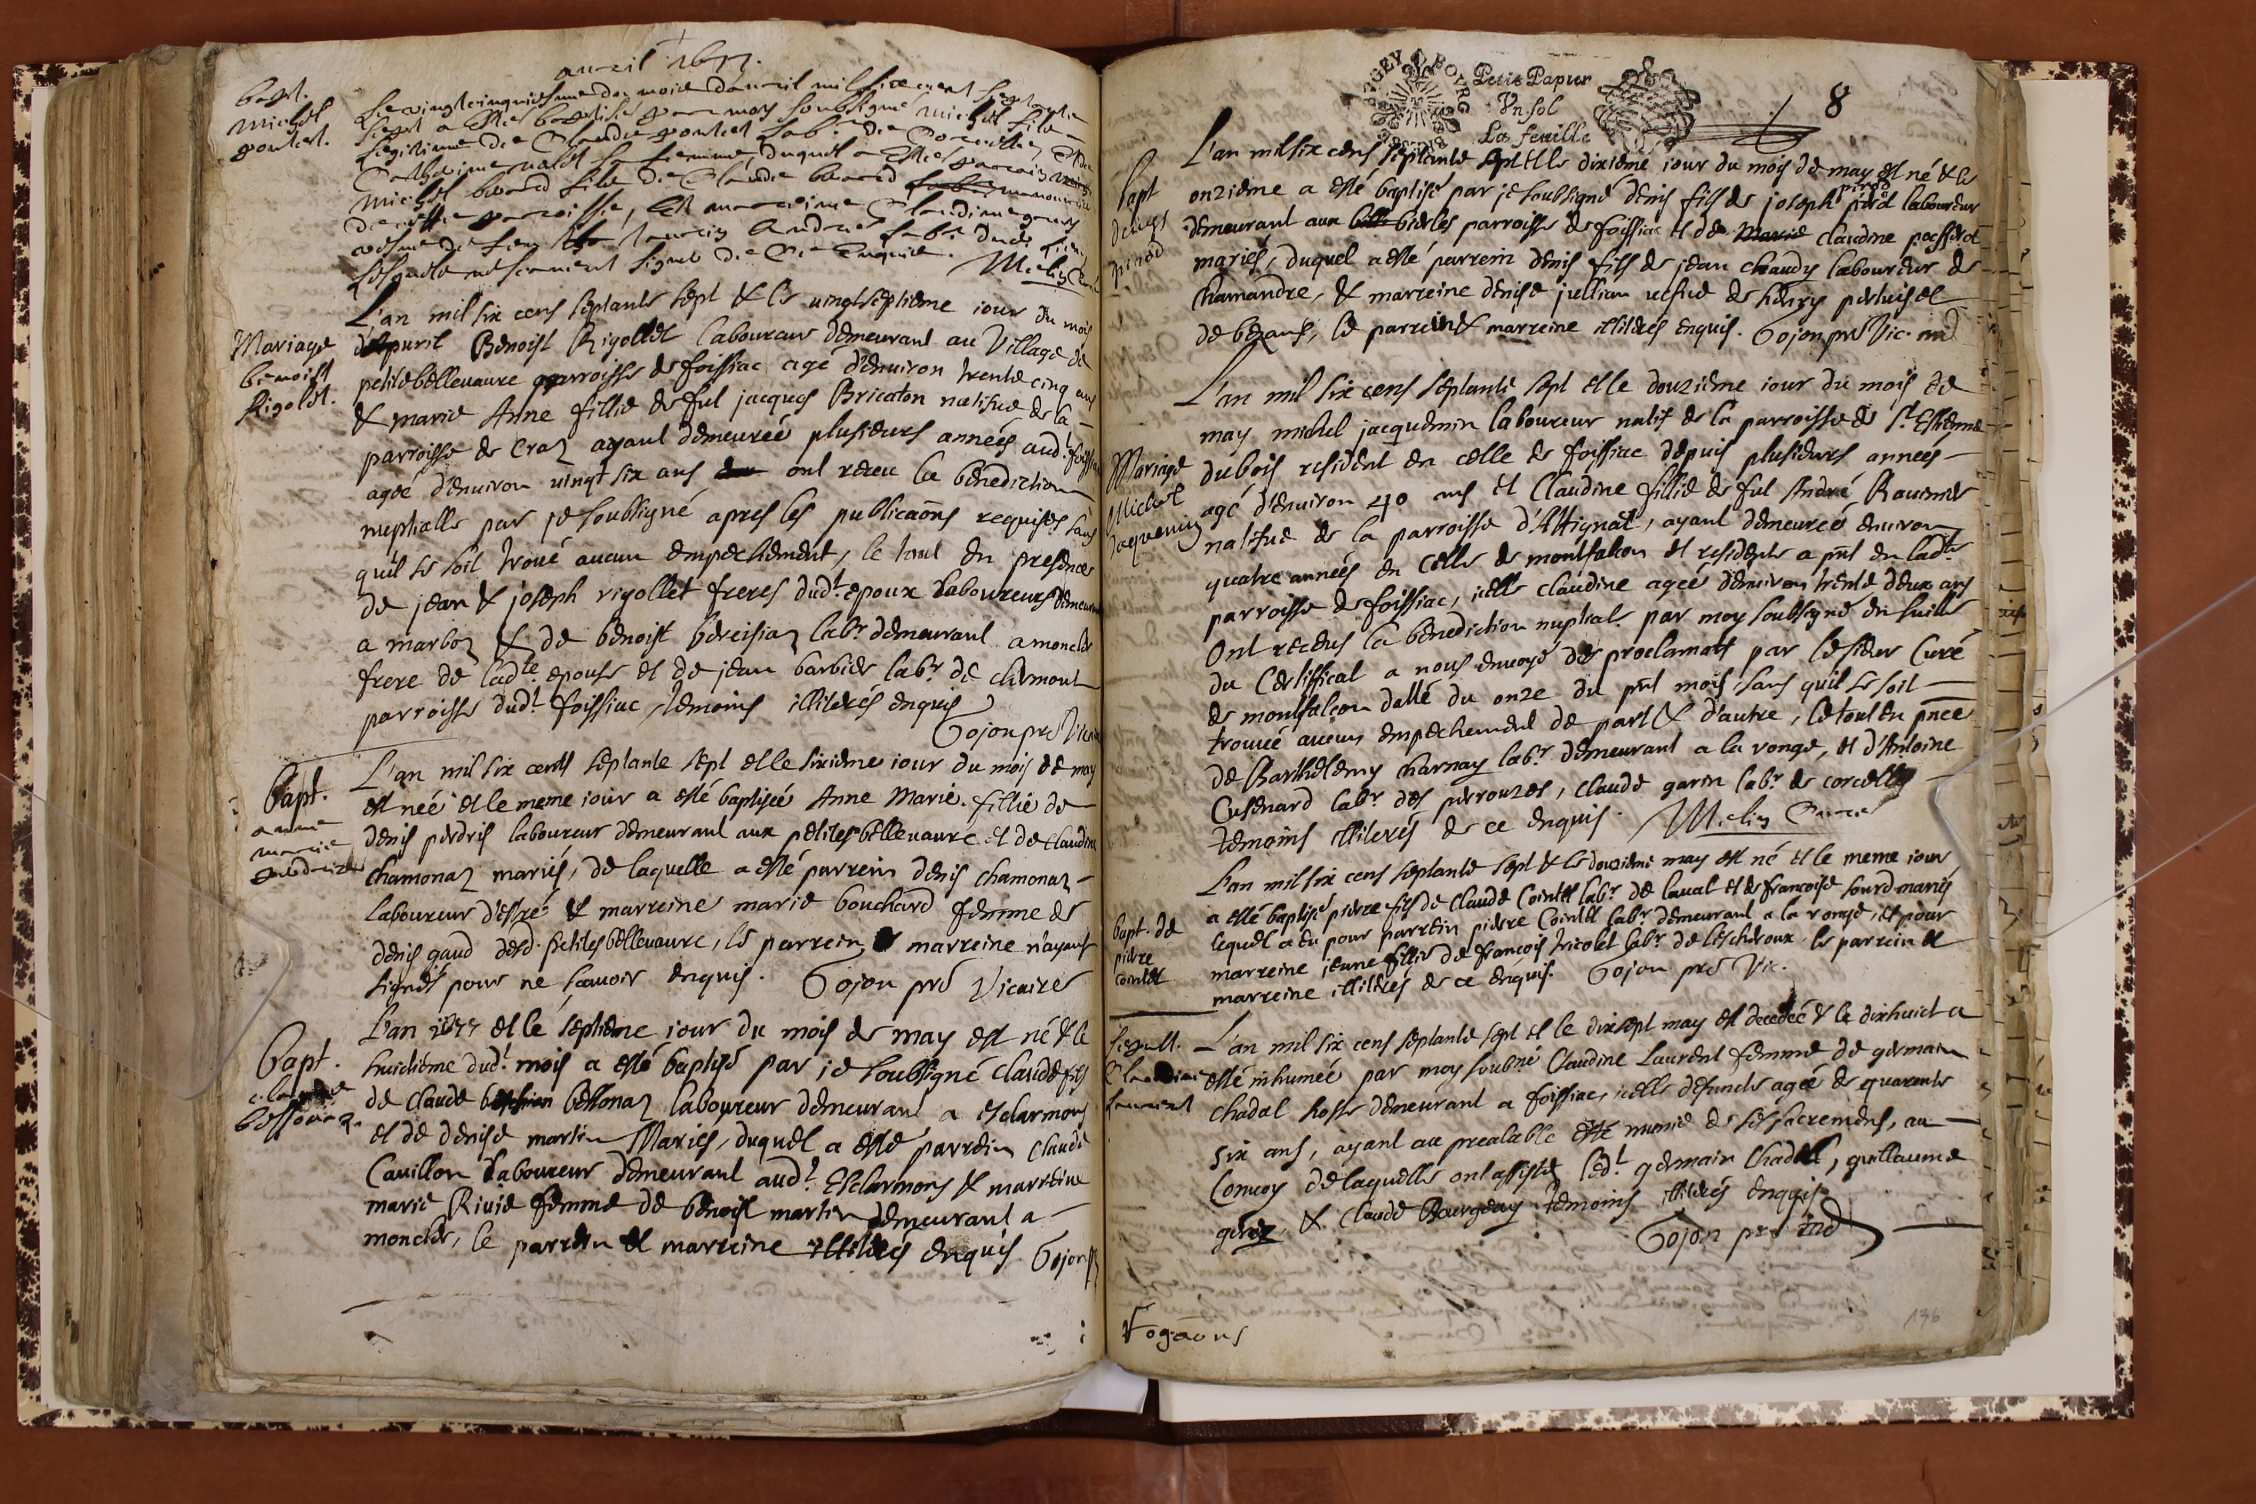 avril 1677.
bapt.
michel
ponset.
Le vingt cinquiesme du mois davril mil six cent septante
sept a este baptisé par moy soubsigné michel fils
legitime de Claude ponset lab.r de
Catherine sa femme duquel a este parrain
michel fils de Claude
de cette parroisse, et marraine Claudine
vefve de feu laurens André lab.r dud.
lesquels ne scavent signer de ce enquis.
Mariage
benoist
Rigolet.
L'an mil six cens septante sept & le vingtseptieme iour du mois
d'apuril Benoist Rigollet laboureur demeurant au Village de
petitebellevaure parroisse de foissiac agé d'environ trente cinq ans
& marie Anne fillie de fut jacques Bricaton natifue de la
parroisse de Craz ayant demeureé plusieurs années aud.t foissia
ageé d'enuiron uingt six ans ont receu la benediction
nuptialle par je soubsigné apres les publicaõns requises sans
qu'il se soit trouué aucun empechement, le tout en presence
de jean & joseph rigollet freres dud.t epoux laboureurs demeurant
a marboz & de benoist bereiziaz lab.r demeurant a moncler
frere de lad.te epouse et de jean barbier lab.r de clermont
parroisse dud.t foissiac, temoins illiterés enquis
Gojon prê Vicaire
Bapt.
anne
marie
L'an mil six cents septante sept et le sixieme iour du mois de may
est neé et le meme iour a esté baptiseé Anne Marie fillie de
denis perdrix laboureur demeurant aux petites bellevaure et de claudine
chamonaz mariés, de laquelle a esté parrein denis chamonaz
laboureur d'estré & marreine marie bouchard femme de
denis gaud desd. petites bellevaure, le parrein & marreine n'ayant
signés pour ne scauoir enquis. Gojon prê Vicaire
Bapt.
claude
bessonaz.
L'an 1677 et le septieme iour du mois de may est né & le
huictieme dud.t mois a esté baptisé par je soubsigné claude fils
de claude bessonaz laboureur demeurant a esclarmons
et de denise martin Mariés, duquel a esté parrein claude
Cauillon laboureur demeurant aud.t Esclarmons & marreine
marie Riuie femme de benoist martin demeurant a
moncler, le parrein et marreine illiterés enquis. Gojon p
BVGEY BOVRG
Petit Papier
Vn sol
La feuille
8
bapt
denys
pirod
L'an mil six cens septante sept et le dixieme iour du mois de may est né & le
onzieme a esté baptisé par je soubsigné denis fils de joseph pirod laboureur
demeurant aux bierles parroisse de foissiac et de Marie claudine passerat
mariés, duquel a esté parrein denis fils de jean chaudy laboureur de
chamandre, & marreine denise jullian vefue de henry pertuiset
de bezans, le parrein & marreine illiterés enquis. Gojon prê Vic. ind
Mariage
Michel
Jaquemin
L'an mil six cens septante sept et le douzieme iour du mois de
may michel jacquemin laboureur natif de la parroisse de S.t Estienne
dubois resident en celle de foissiac depuis plusieurs années
agé d'enuiron 40 ans et Claudine fillie de fut André Rauinet
natifue de la parroisse d'Attignat, ayant demeureé enuiron
quatre années en celle de montfalcon et residente a pñt en lad.te
parroisse de foissiac, icelle claudine ageé d'enuiron trente deux ans
Ont receus la benediction nuptiale par moy soubsigné en suitte
du Certifficat a nous enuoyé des proclamats par le sieur Curé
de montfalcon datté du onze du pñt mois, sans qu'il se soit
trouué aucun empechement de part & d'autre, le tout en pñce
de Barthelemy charnay lab.r demeurant a la ronge, et d'Antoine
Cusenard lab.r des perrouzes, claude garin lab.r de corcelles
temoins illiterés de ce enquis.
bapt. de
pierre
cointet
L'an mil six cens septante sept & le douzieme may est né et le meme iour
a esté baptisé pierre fils de claude Cointet lab.r de laual et de francoise sourd mariés
lequel a eu pour parrein pierre Cointet lab.r demeurant a la ronge, et pour
marreine jeune fillie de francois tricolet lab.r de l'escheroux. le parrein et
marreine illiterés de ce enquis. Gojon prê Vic.
sepult.
Claudine
laurent
L'an mil six cens septante sept et le dixsept may est decedeé & le dixhuict a
esté inhumeé par moy soubné Claudine Laurent femme de germain
chadal hoste demeurant a foissiac, icelle defuncte ageé de quarente
six ans, ayant au prealable esté munie de ses sacremens, au
Conuoy de laquelle ont assisté led.t germain chadal, guillaume
gerez & Claude Bourgeay temoins illiterés enquis
Gojon prê ind
136